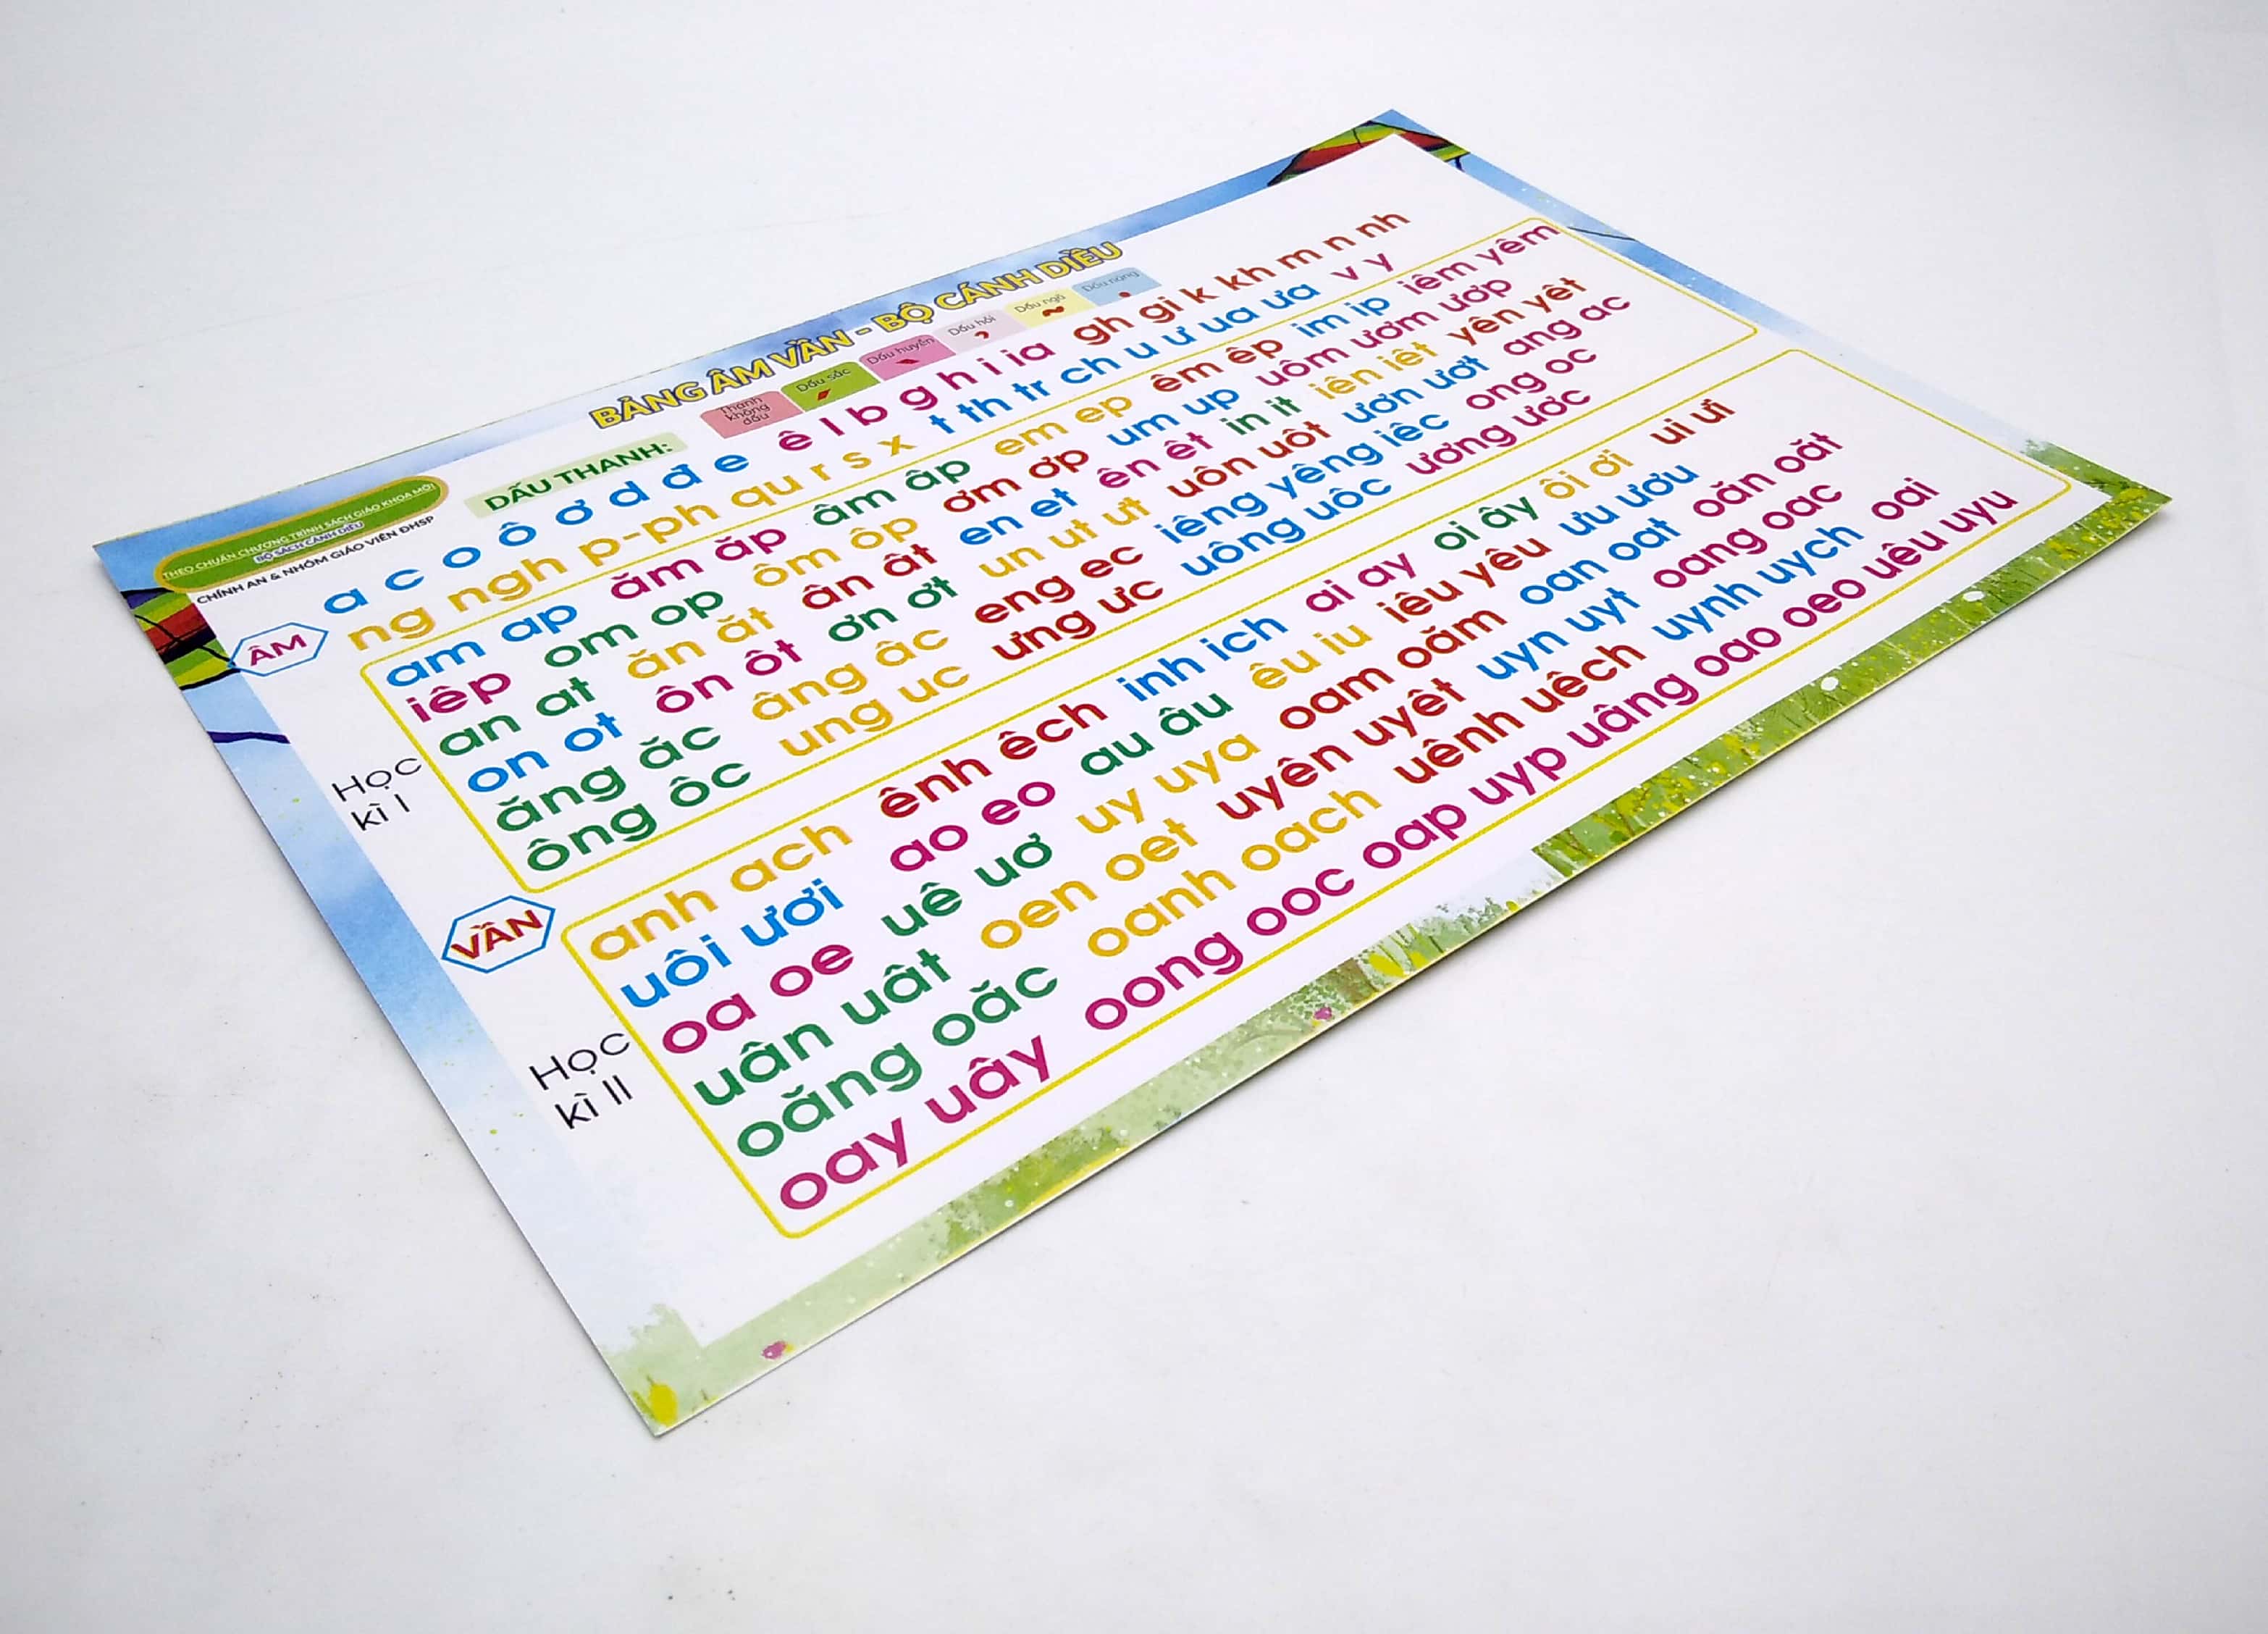 BẢNG ÂM VẦN - BỘ CÁNH DIỀU
THEO CHUẨN CHƯƠNG TRÌNH SÁCH GIÁO KHOA MỚI
BỘ SÁCH CÁNH DIỀU
CHÍNH AN & NHÓM GIÁO VIÊN ĐHSP
DẤU THANH:
Thanh không dấu
Dấu sắc
Dấu huyền
Dấu hỏi
Dấu ngã
Dấu nặng
ÂM
a c o ô ơ d đ e ê l b g h i ia gh gi k kh m n nh
ng ngh p-ph qu r s x t th tr ch u ư ua ưa v y
VẦN
Học kì I
am ap ăm ăp âm âp em ep êm êp im ip iêm yêm
iêp om op ôm ôp ơm ơp um up uôm ươm ươp
an at ăn ăt ân ât en et ên êt in it iên iêt yên yêt
on ot ôn ôt ơn ơt un ut ưt uôn uôt ươn ươt ang ac
ăng ăc âng âc eng ec iêng yêng iêc ong oc
ông ôc ung uc ưng ưc uông uôc ương ước
Học kì II
anh ach ênh êch inh ich ai ay oi ây ôi ơi ui ưi
uôi ươi ao eo au âu êu iu iêu yêu ưu ươu
oa oe uê uơ uy uya oam oăm oan oat oăn oăt
uân uât oen oet uyên uyêt uyn uyt oang oac
oăng oăc oanh oach uênh uêch uynh uych oai
oay uây oong ooc oap uyp uâng oao oeo uêu uyu